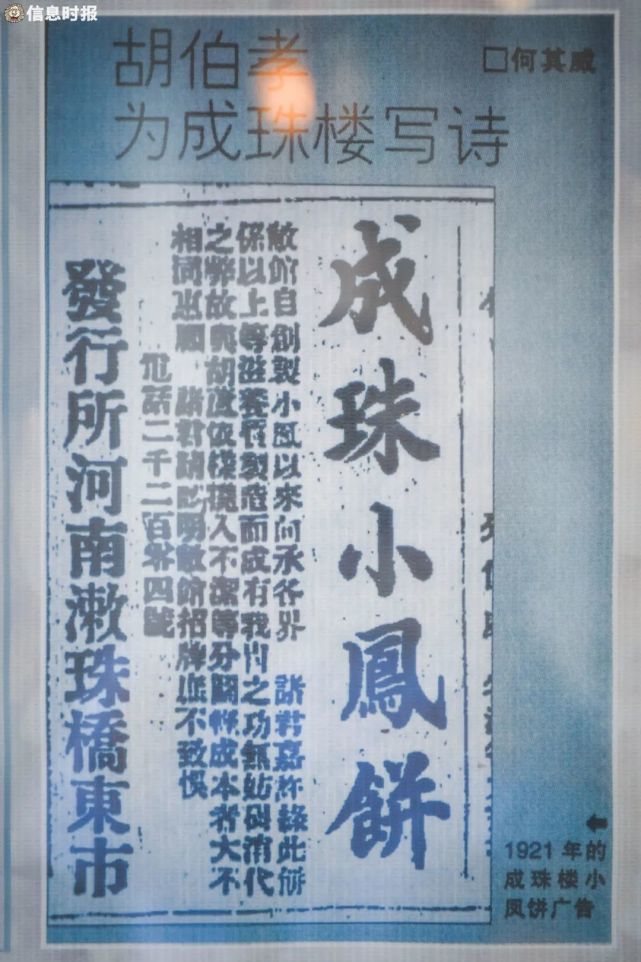 信息时报
胡伯孝
□何其威
为成珠楼写诗
成珠小鳳餅
敝館自創製小鳳以來向承各界 諸君嘉許緣此餅
係以上等滋養質製造而成有胃之功無妨碍消代
之弊故與胡依樣攙入不潔等分圖輕成本者大不
相同惠顧 諸君請認明敝館招牌庶不致悞
電話二千二百零四號
發行所河南漱珠橋東市
1921 年的
成珠楼小
凤饼广告